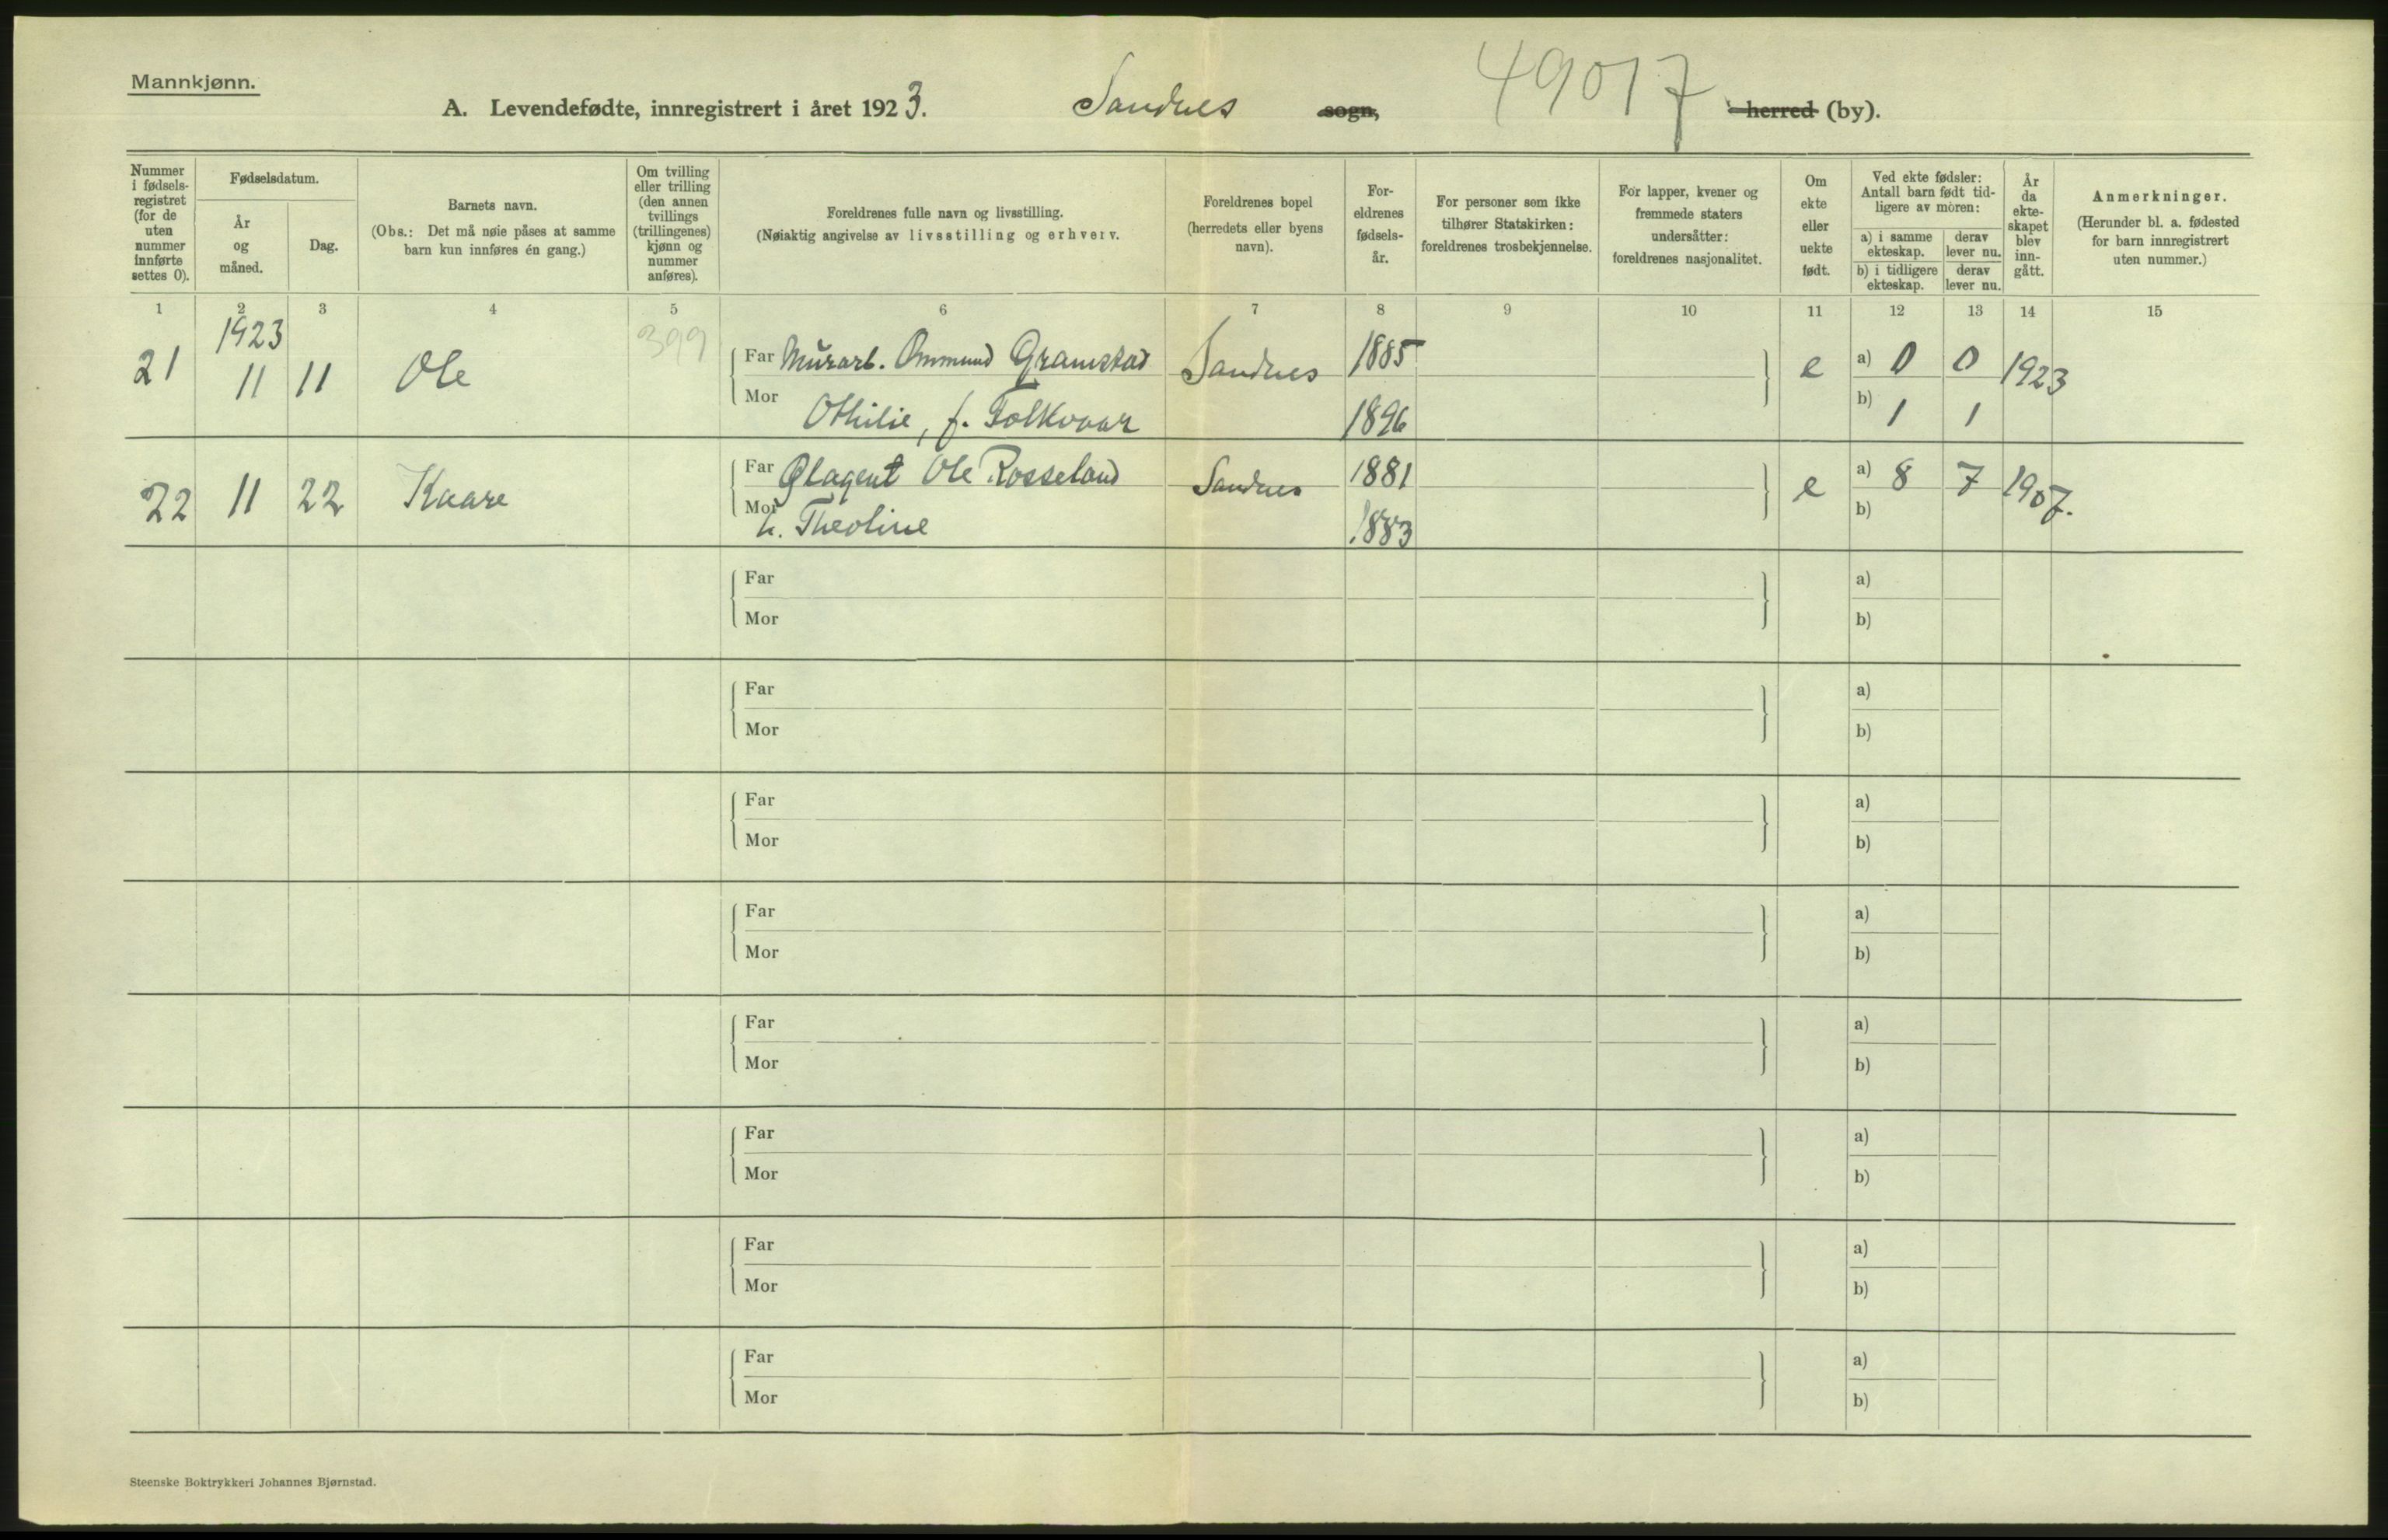 Mannkjønn.
49017
A. Levendefødte, innregistrert i året 1923. Sandnes sogn, herred (by).
Nummer i fødselsregistret (for de uten nummer innførte settes 0).
Fødselsdatum.
År og måned.
Dag.
Barnets navn.
(Obs.: Det må nøie påses at samme barn kun innføres én gang.)
Om tvilling eller trilling (den annen tvillings (trillingenes) kjønn og nummer anføres).
Foreldrenes fulle navn og livsstilling.
(Nøiaktig angivelse av livsstilling og erhverv.
Foreldrenes bopel (herredets eller byens navn).
Foreldrenes fødselsår.
For personer som ikke tilhører Statskirken: foreldrenes trosbekjennelse.
For lapper, kvener og fremmede staters undersåtter: foreldrenes nasjonalitet.
Om ekte eller uekte født.
Ved ekte fødsler: Antall barn født tidligere av moren:
a) i samme ekteskap. derav lever nu.
b) i tidligere ekteskap. derav lever nu.
År da ekteskapet blev inngått.
Anmerkninger.
(Herunder bl. a. fødested for barn innregistrert uten nummer.)
1 2 3 4 5 6 7 8 9 10 11 12 13 14 15
1923 399
21 11 11 Ole Far Murarb. Ommund Gramstad Sandnes 1885 e a) 0 0 1923
Mor Othilie, f. Folkvaar 1896 b) 1 1
22 11 22 Kaare Far Ølagent Ole Rosseland Sandnes 1881 e a) 8 7 1907.
Mor h. Theoline 1883 b)
Far a)
Mor b)
Far a)
Mor b)
Far a)
Mor b)
Far a)
Mor b)
Far a)
Mor b)
Far a)
Mor b)
Far a)
Mor b)
Far a)
Mor b)
Steenske Boktrykkeri Johannes Bjørnstad.